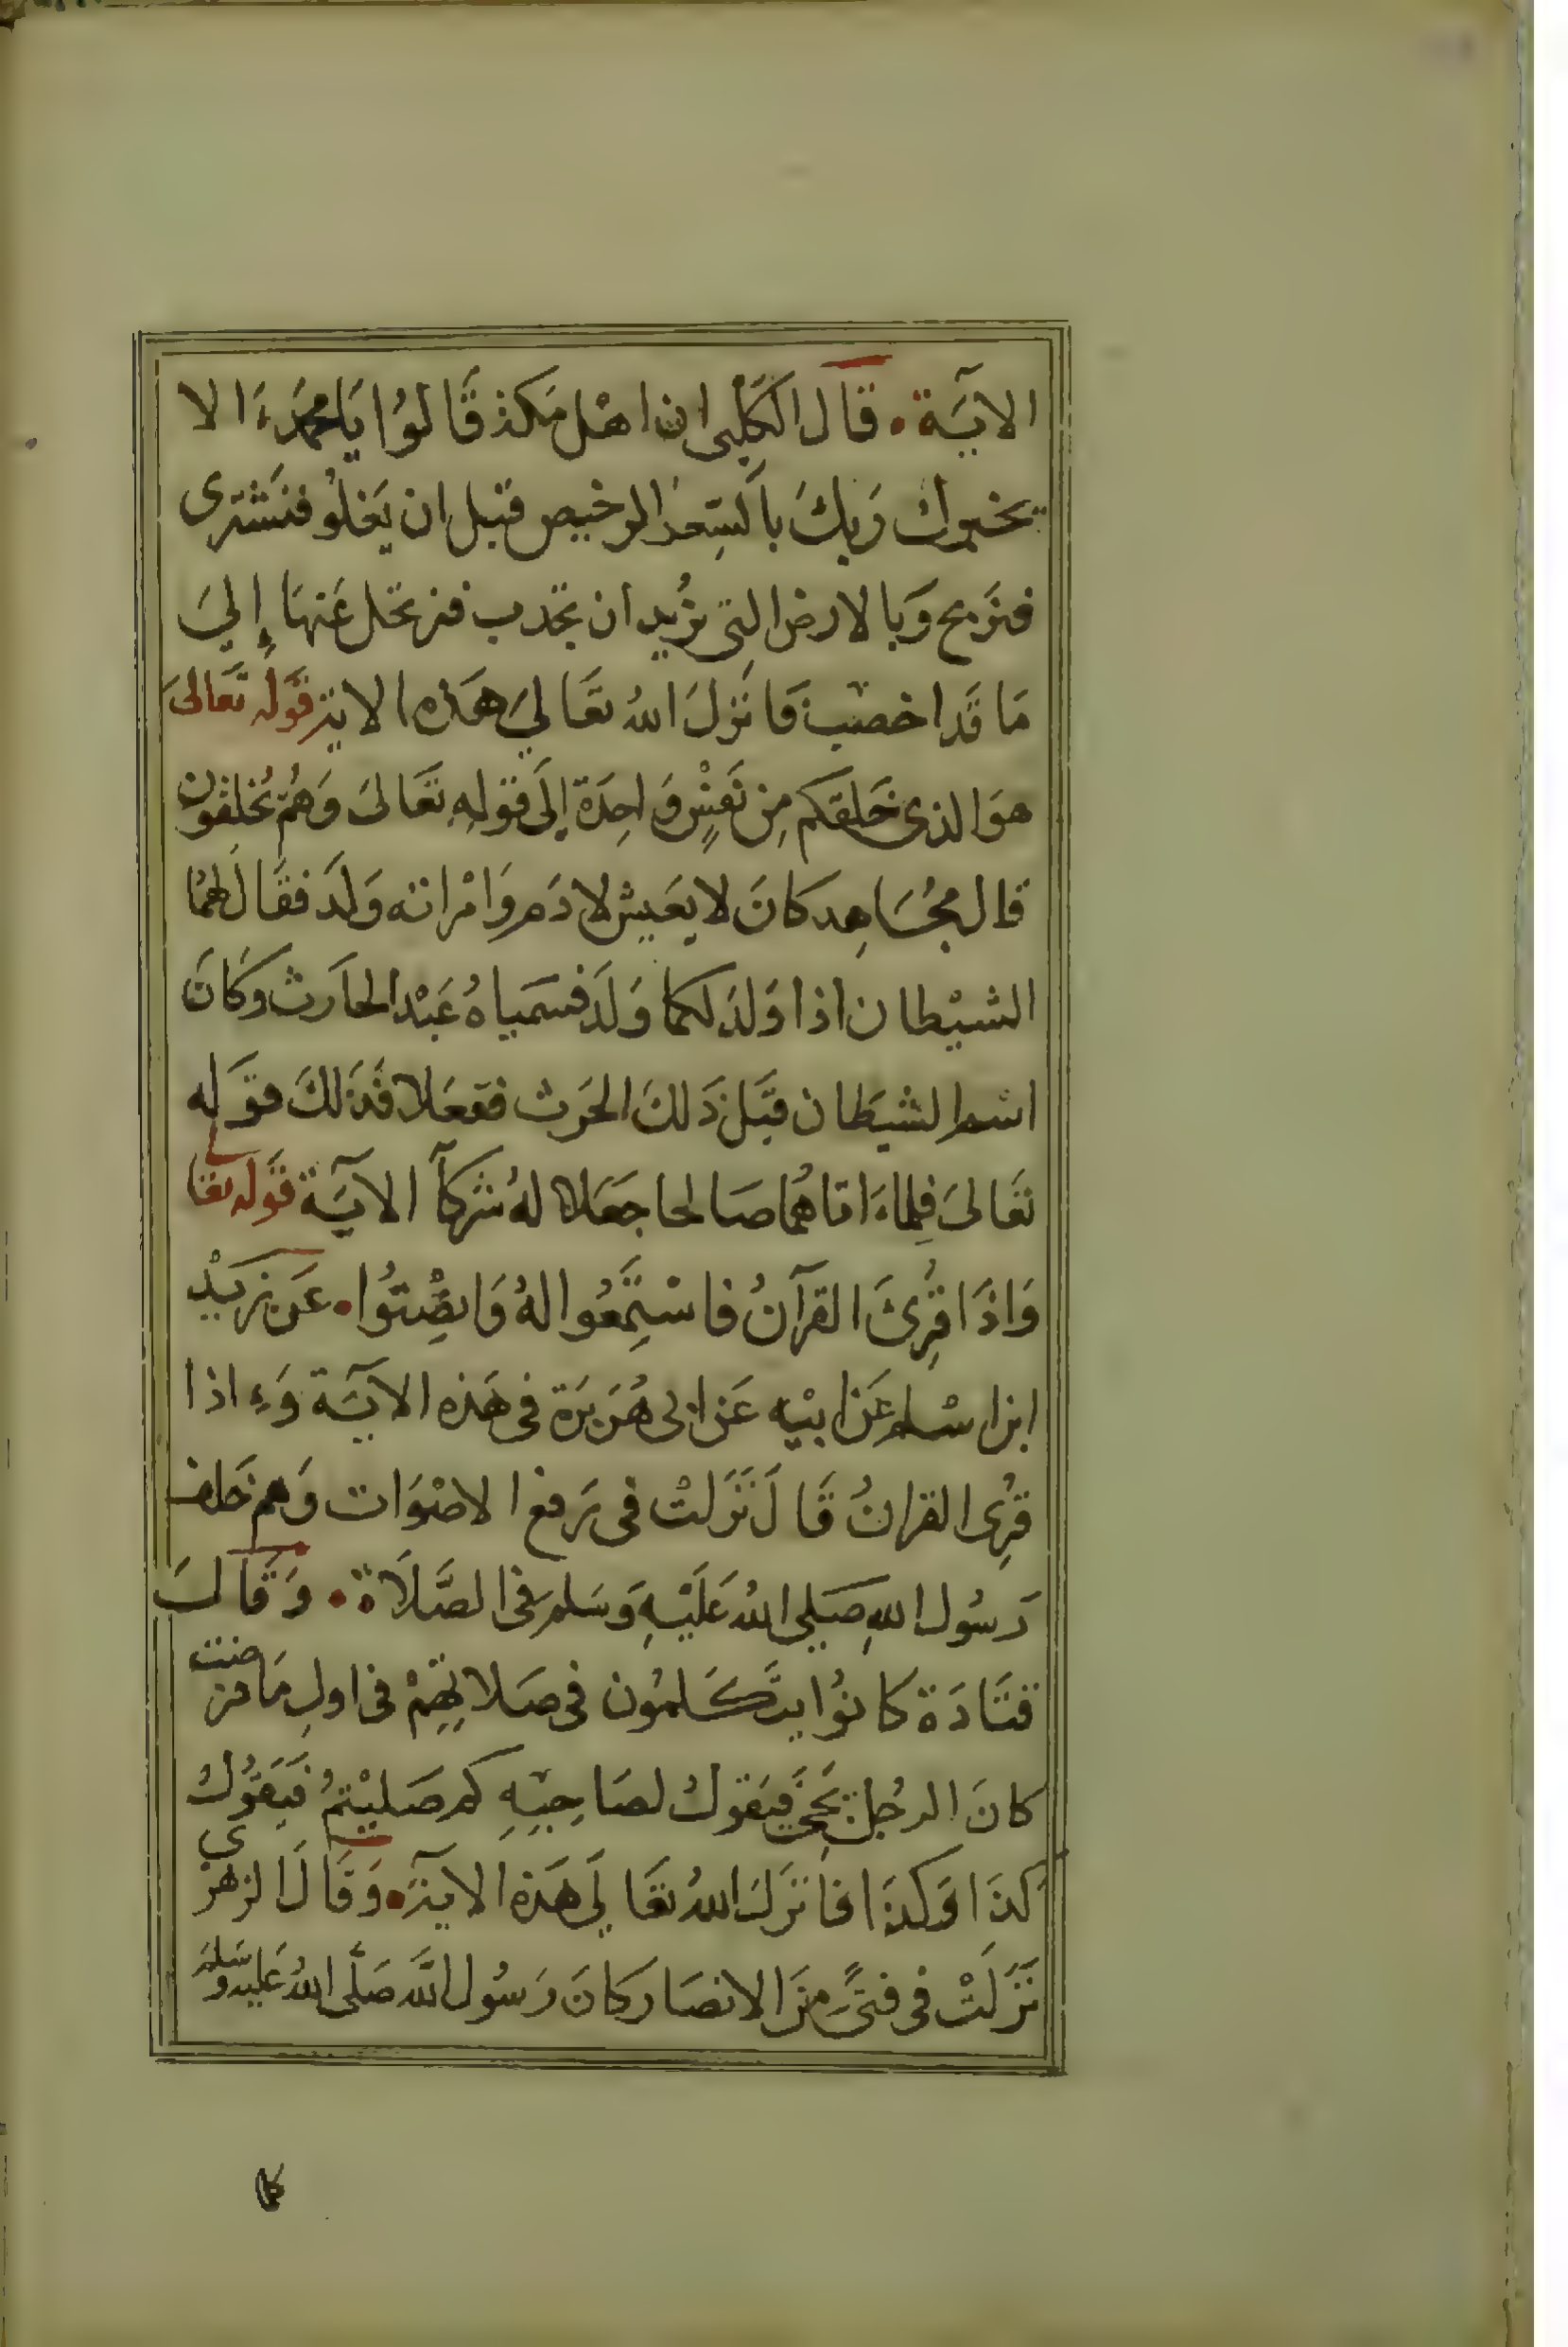 الآية • قال الكلبى ان اهل مكة قالوا يا محمد الا
يخبرك ربك بالسعر الرخيص قبل ان يغلو فنشترى
فنربح وبالارض التى يزيد ان تجدب فنرتحل عنها إلى
ما قد اخصب فانزل الله تعالى هذه الاية قوله تعالى
هو الذى خلقكم من نفس واحدة إلى قوله تعالى وهم يخلقون
قال مجاهد كان لا يعيش لادم وامراته ولد فقال لهما
الشيطان اذا ولد لكما ولد فسمياه عبد الحارث وكان
اسم الشيطان قبل ذلك الحرث ففعلا فذلك قوله
تعالى فلما اتاهما صالحا جعلا له شركآ الآية قوله تعا
واذا قرئ القرآن فاستمعوا له وانصتوا • عن زيد
ابن اسلم عن ابيه عن ابى هريرة فى هذه الآية وءاذا
قرى القران قال نزلت فى رفع الاصوات وهم خلف
رسول الله صلى الله عليه وسلم فى الصلاة • وقال
قتادة كانوا يتكلمون فى صلاتهم فى اول ما فرضت
كان الرجل يجئ فيقول لصاحبه كم صليتم فيقول
كذا وكذا فانزل الله تعالى هذه الآية • وقال الزهرى
نزلت فى فتى من الانصار كان رسول الله صلى الله عليه وسلم
كلما